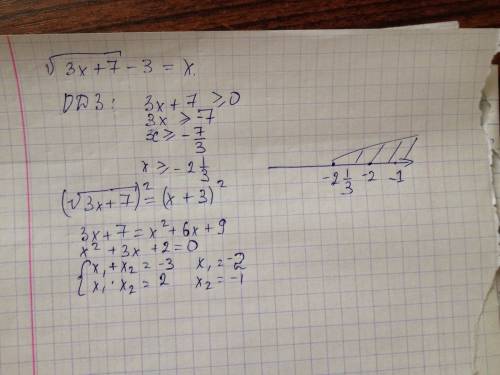 √(3x+7) - 3 = x.
ОДЗ: 3x+7 ≥ 0
3x ≥ -7
x ≥ -7/3
x ≥ -2 1/3
-2 1/3 -2 -1
(√(3x+7))² = (x+3)²
3x+7 = x²+6x+9
x²+3x+2=0
{ x₁+x₂ = -3 x₁ = -2
x₁·x₂ = 2 x₂ = -1